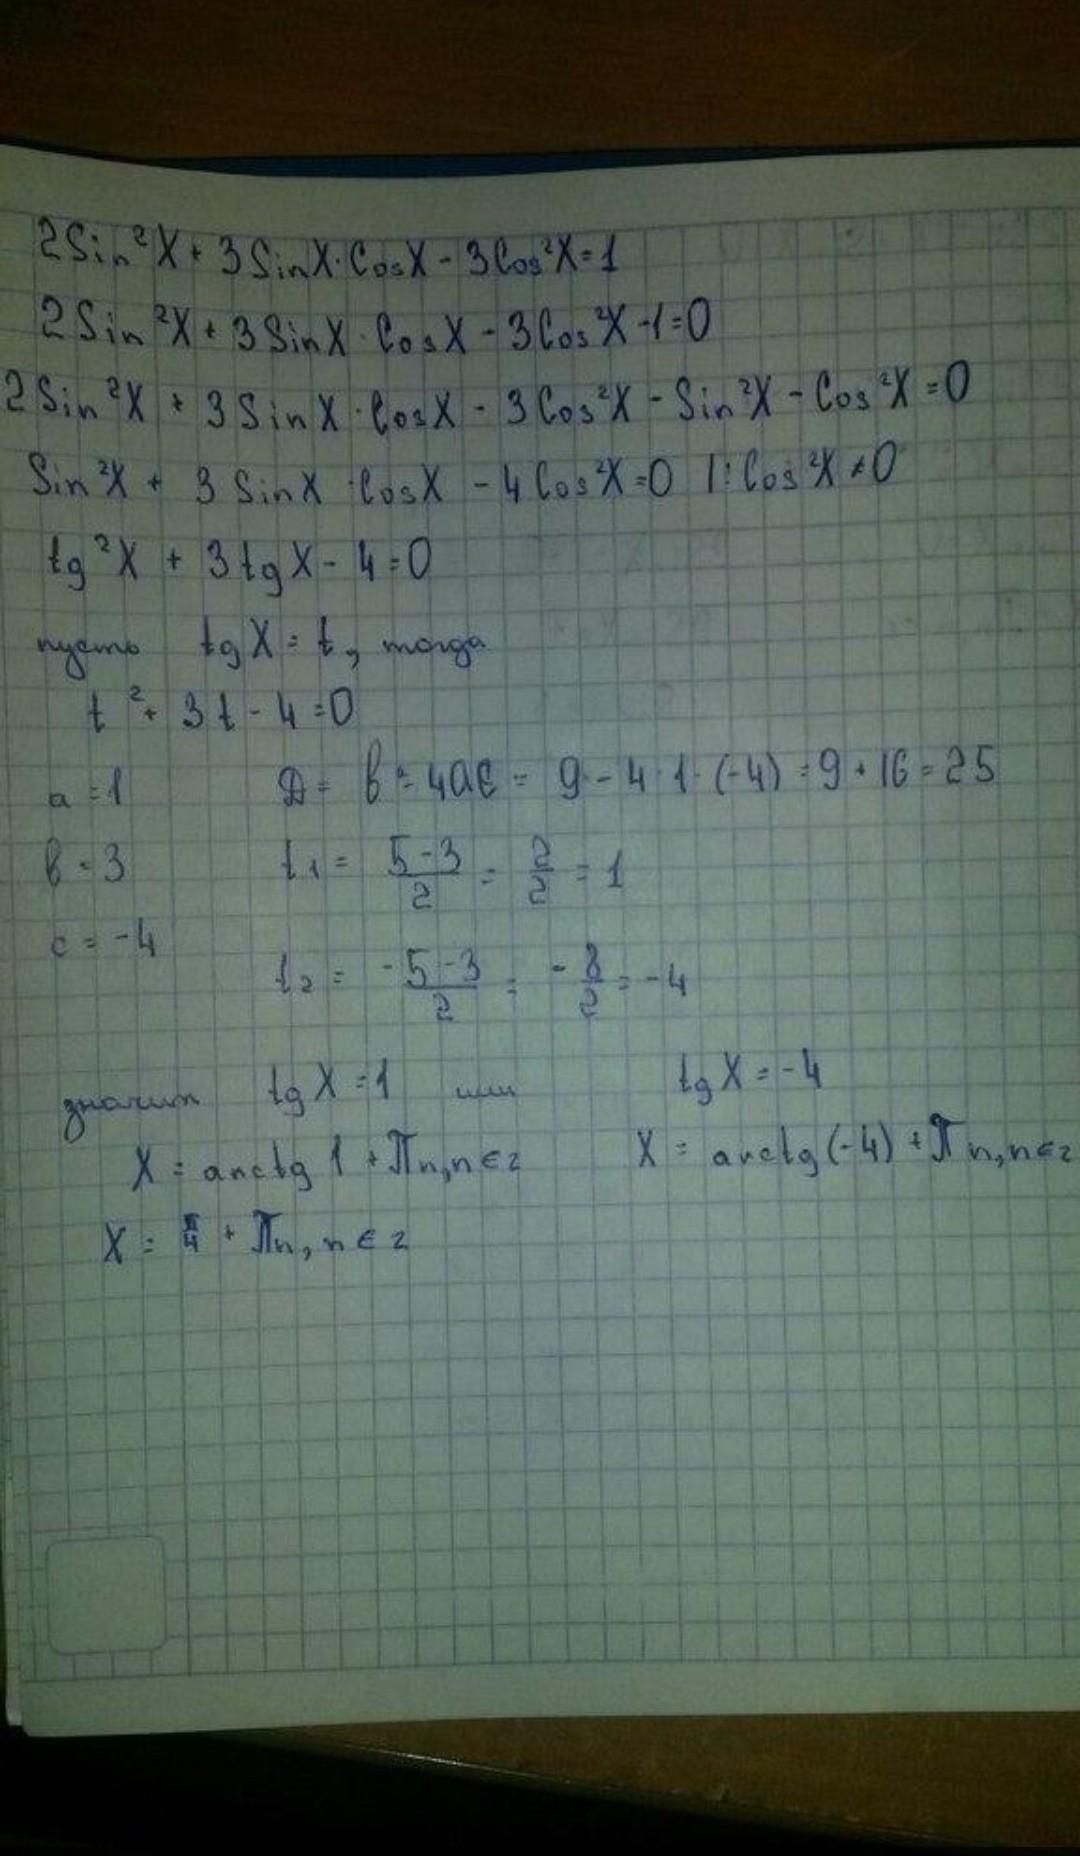 2Sin²X + 3SinX·CosX - 3Cos²X=1
2Sin²X + 3SinX·CosX - 3Cos²X-1=0
2Sin²X + 3SinX·CosX - 3Cos²X - Sin²X - Cos²X=0
Sin²X + 3SinX·CosX - 4Cos²X=0 |:Cos²X≠0
tg²X + 3tgX - 4=0
пусть tgX=t, тогда
t²+3t-4=0
a=1 D= b²-4ac = 9-4·1·(-4) = 9+16=25
b=3 t₁ = (5-3)/2 = 2/2 = 1
c=-4
t₂ = (-5-3)/2 = -8/2 = -4
значит tgX=1 или tgX=-4
X = arctg1 + πn, n∈z X = arctg(-4) + πn, n∈z
X = π/4 + πn, n∈z